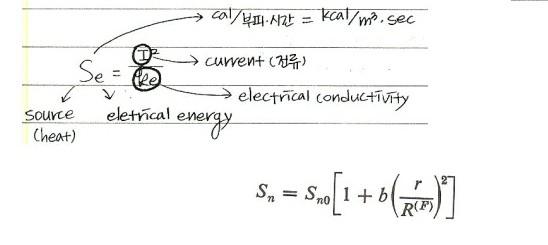 cal/부피·시간 = kcal/m³·sec
Se = I²/ke
current (전류)
electrical conductivity
source (heat)
eletrical energy
Sn = Sn0[1 + b(r/R^(F))²]